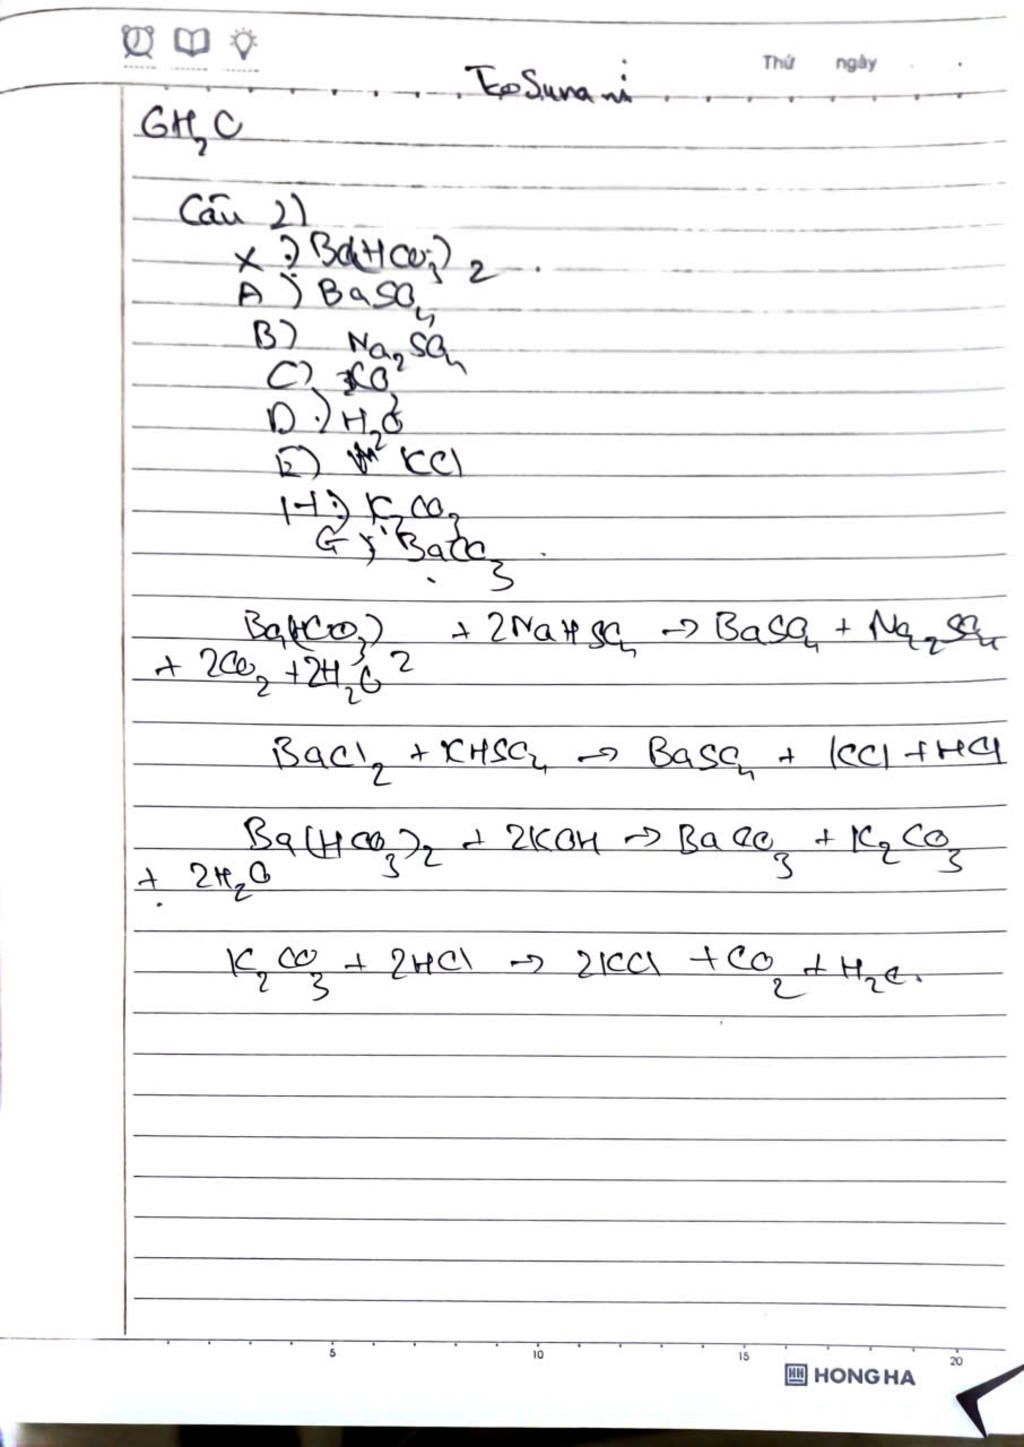 Thứ ngày
GH₂C
Câu 2)
X :) Ba(HCO₃)₂
A :) BaSO₄
B) Na₂SO₄
C) CO₂
D :) H₂O
E) KCl
H :) K₂CO₃
G :) BaCO₃
Ba(HCO₃)₂ + 2NaHSO₄ → BaSO₄ + Na₂SO₄
+ 2CO₂ + 2H₂O
BaCl₂ + KHSO₄ → BaSO₄ + KCl + HCl
Ba(HCO₃)₂ + 2KOH → BaCO₃ + K₂CO₃
+ 2H₂O
K₂CO₃ + 2HCl → 2KCl + CO₂ + H₂O.
5 10 15 20
HH HONG HA